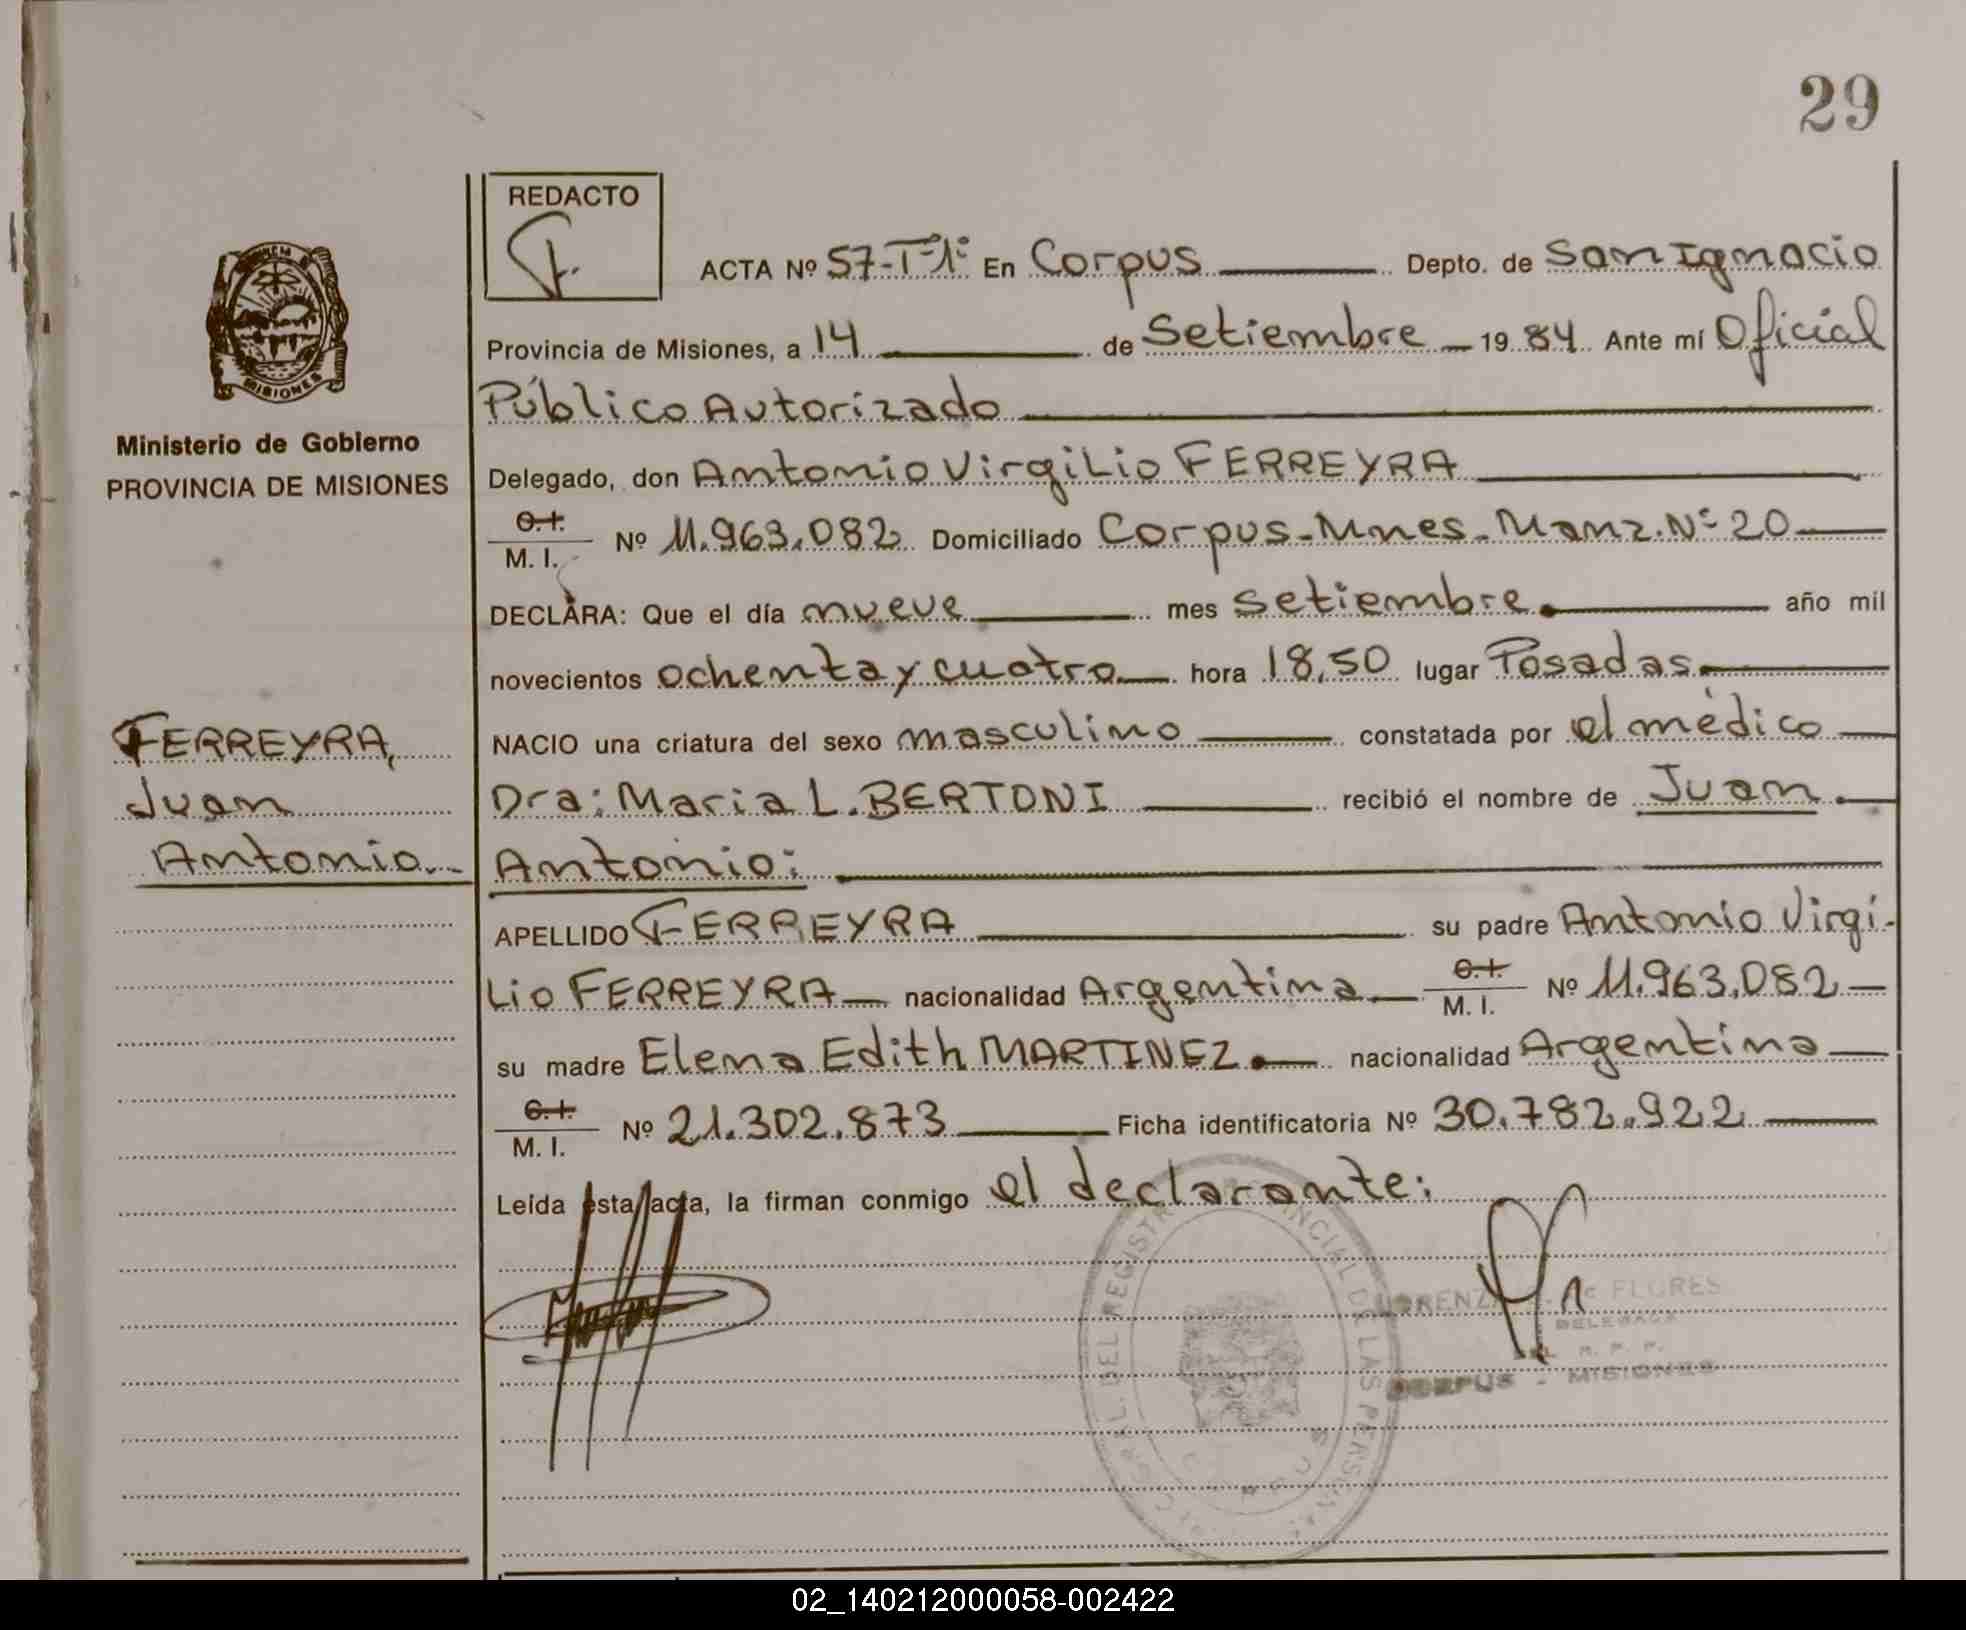 29
REDACTO
ACTA Nº 57-Tº1º En Corpus Depto. de San Ignacio
Provincia de Misiones, a 14 de Setiembre 1984 Ante mí Oficial
Público Autorizado
Ministerio de Gobierno
PROVINCIA DE MISIONES
Delegado, don Antonio Virgilio FERREYRA
C.I.
M. I. Nº 11.963.082 Domiciliado Corpus-Mnes-Manz. Nº 20
DECLARA: Que el día nueve mes setiembre año mil
novecientos ochenta y cuatro hora 18,50 lugar Posadas
FERREYRA,
Juan
Antonio
NACIO una criatura del sexo masculino constatada por el médico
Dra: Maria L. BERTONI recibió el nombre de Juan
Antonio:
APELLIDO FERREYRA su padre Antonio Virgi-
lio FERREYRA nacionalidad Argentina C.I.
M. I. Nº 11.963.082
su madre Elena Edith MARTINEZ nacionalidad Argentina
C.I.
M. I. Nº 21.302.873 Ficha identificatoria Nº 30.782.922
Leída esta acta, la firman conmigo el declarante:
DEL REGISTRO PROVINCIAL DE LAS PERSONAS
CORPUS
FLORES
DELEGADA
CORPUS - MISIONES
MISIONES
02_140212000058-002422